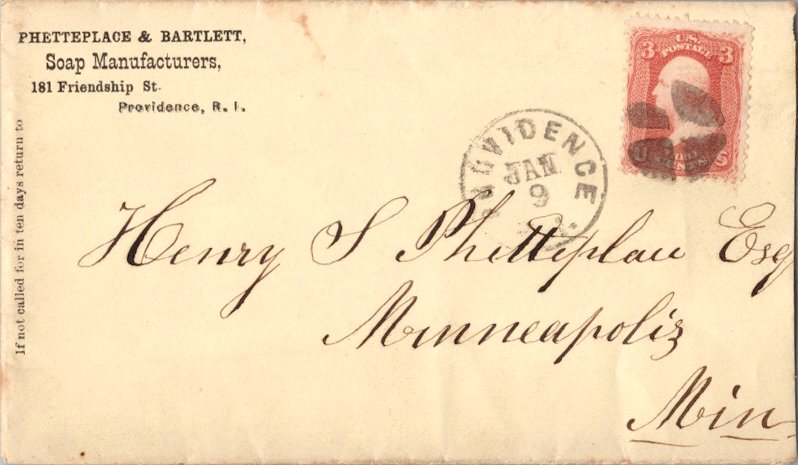 PHETTEPLACE & BARTLETT,
Soap Manufacturers,
181 Friendship St.
Providence, R. I.
If not called for in ten days return to
3 U.S. POSTAGE 3
U CENTS S
PROVIDENCE
JAN
9
R.I.
Henry S Phetteplace Esq
Minneapolis
Min